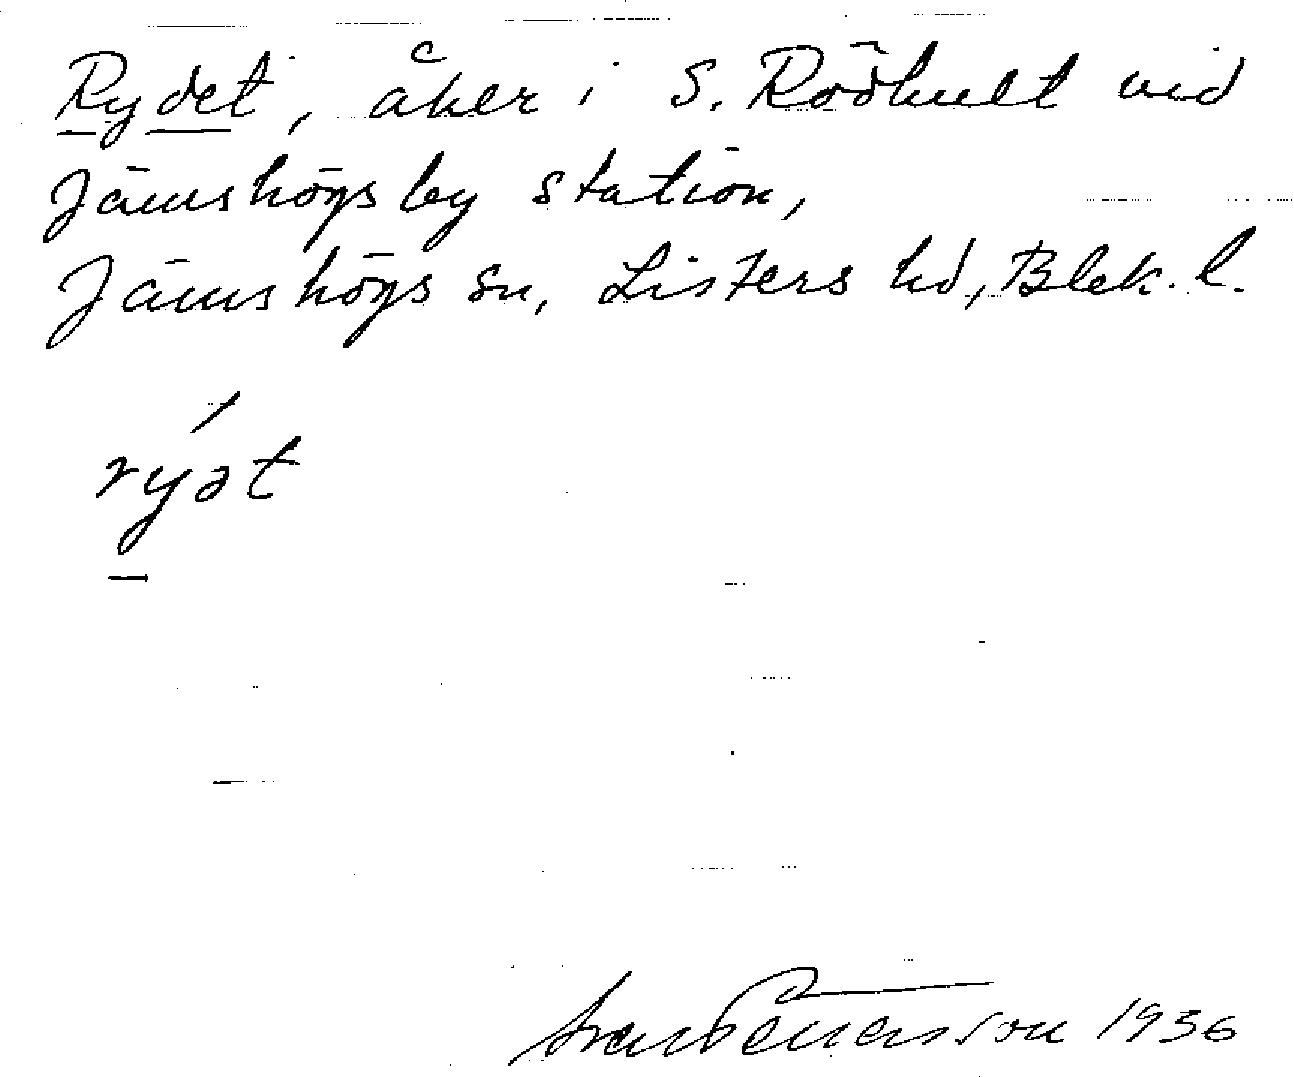 Rydet, åker i S. Rödhult vid
Jämshögsby station,
Jämshögs sn, Listers hd, Blek. l.
rýət
1936